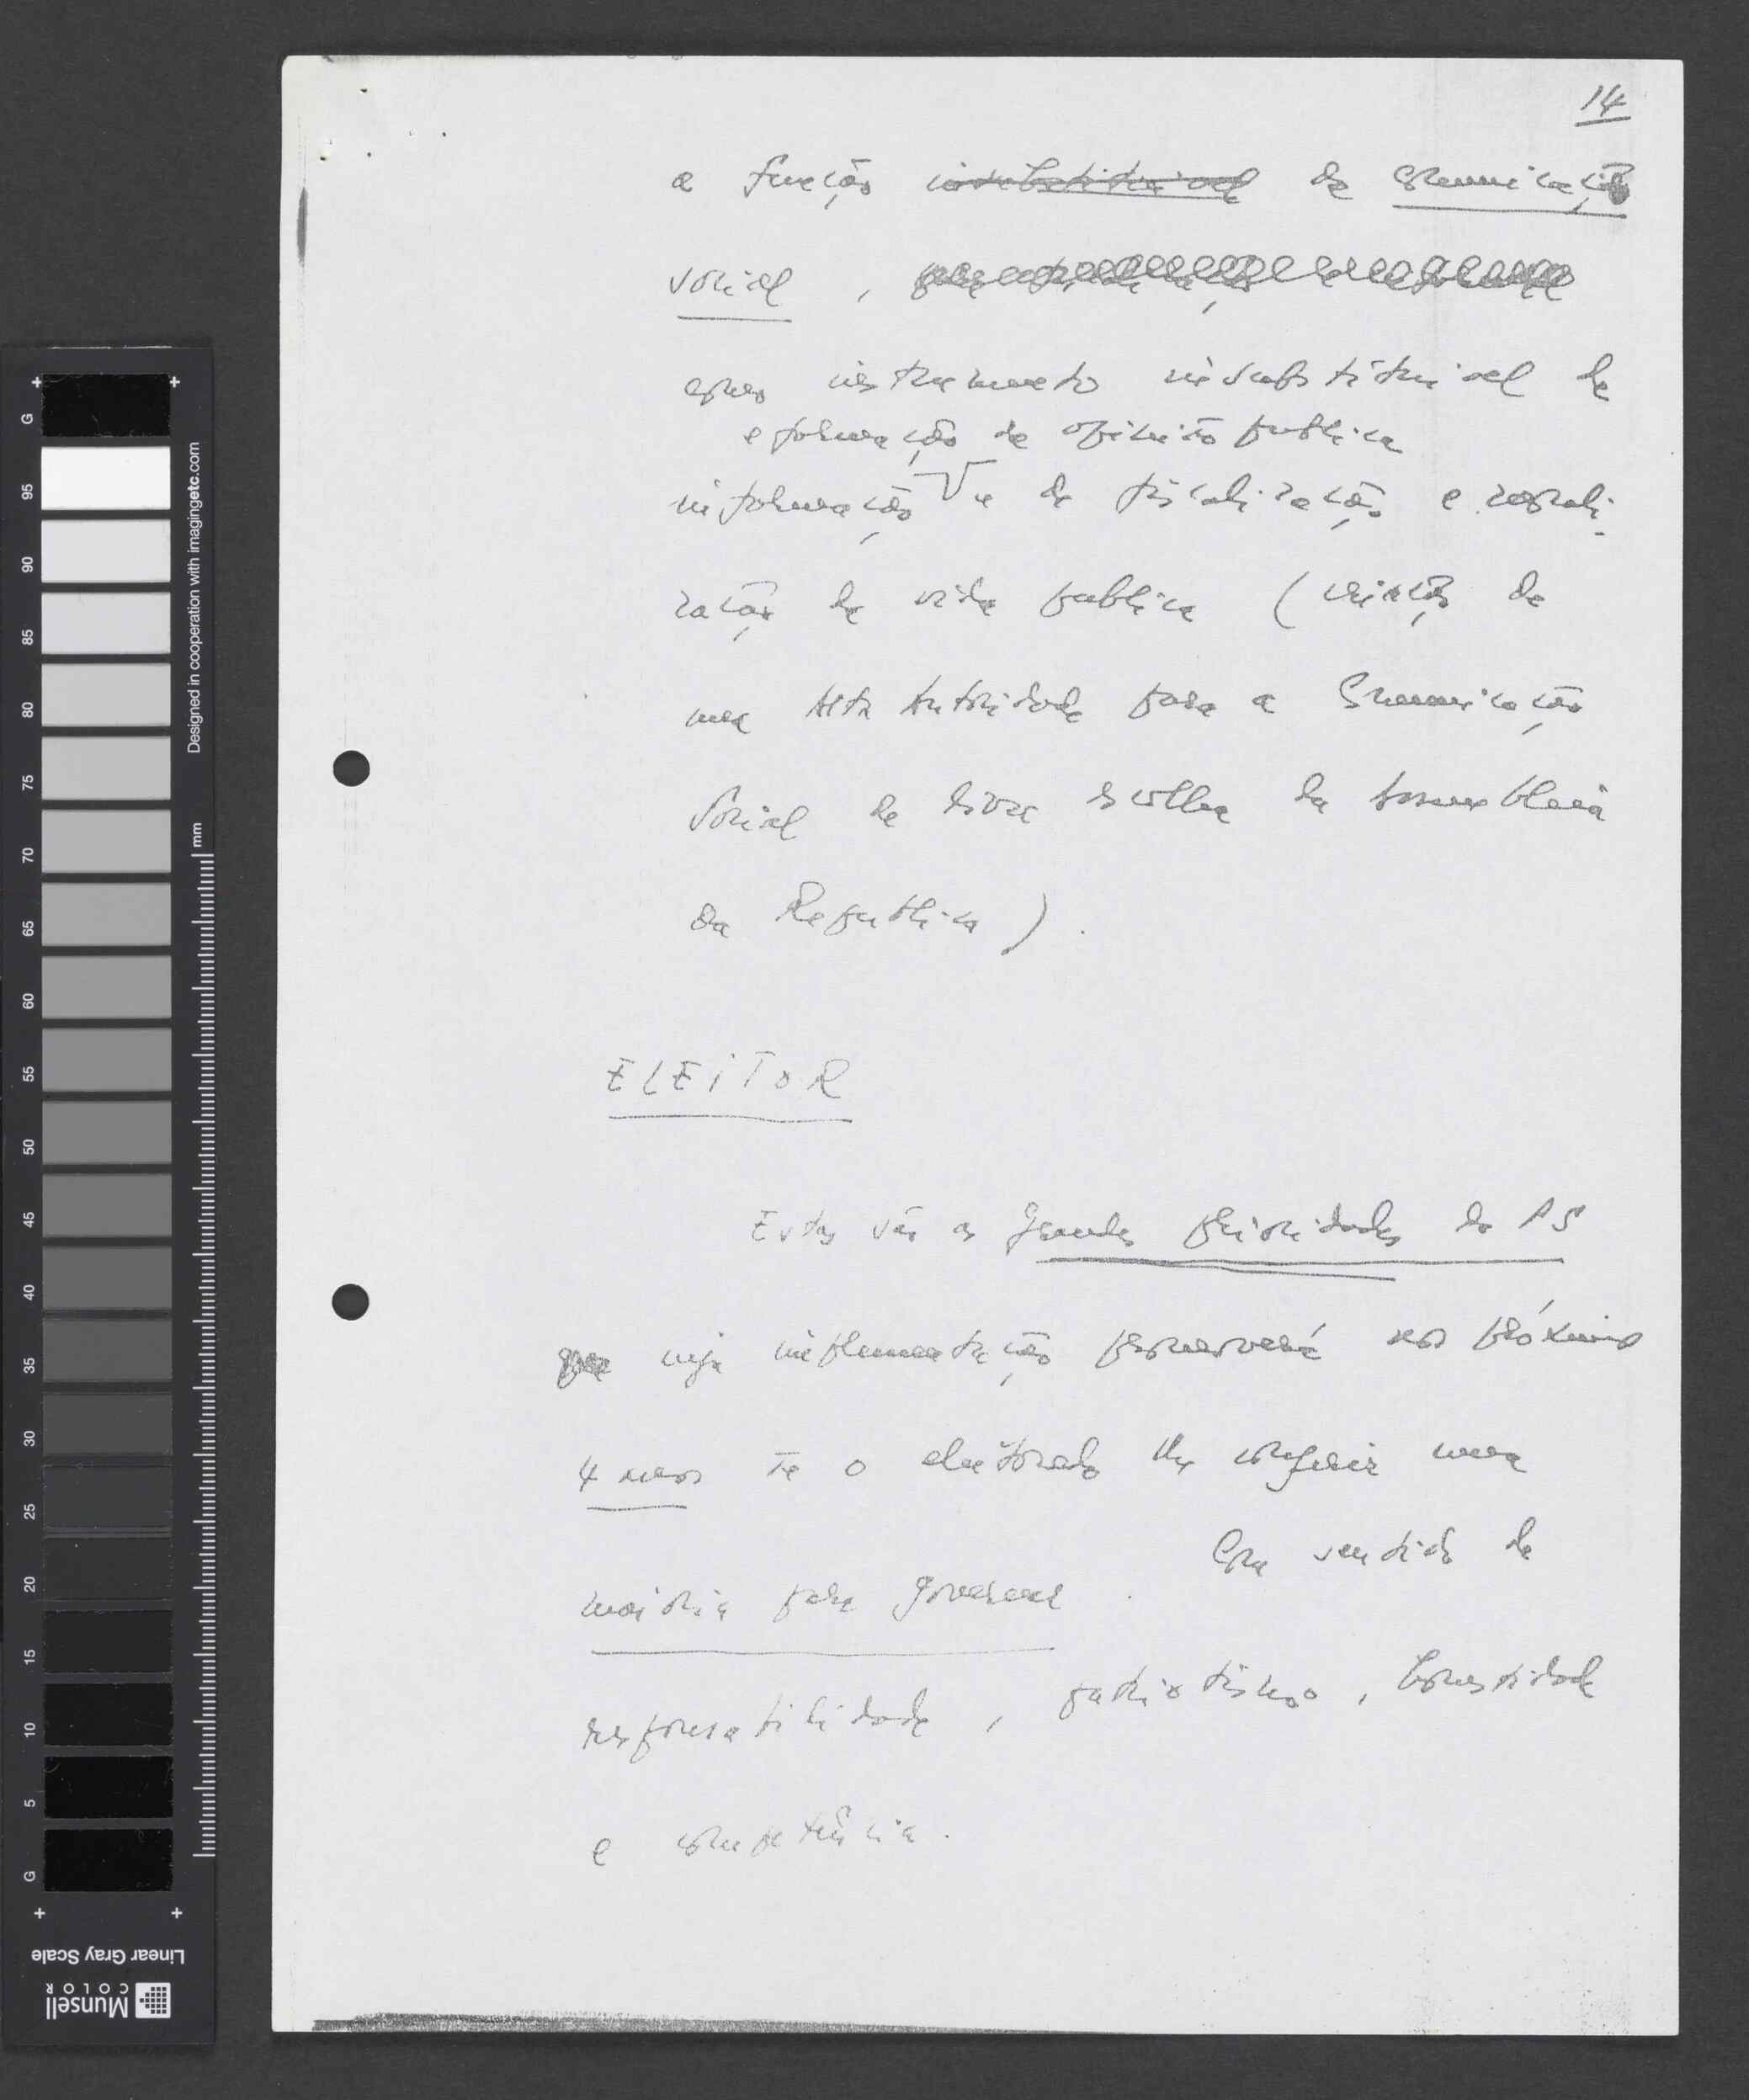 14
a função insubstituivel da Comunicação
social,
como instrumento insubstituivel de
e formação da opinião publica
informação e de fiscalização e morali-
zação da vida publica (criação de
uma Alta Autoridade para a Comunicação
Social de livre escolha da Assembleia
da Republica).
ELEITOR
Estas são as grandes prioridades do PS
cuja implementação promoverá nos próximos
4 anos se o eleitorado lhe conferir uma
maioria para governar. Com sentido de
responsabilidade, patriotismo, honestidade
e competência.
G
95
90
85
80
75
70
65
60
55
50
45
40
35
30
25
20
15
10
5
G
mm
Designed in cooperation with imagingetc.com
Linear Gray Scale
Munsell
COLOR